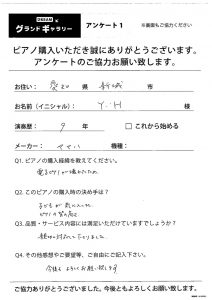 グランドギャラリー アンケート1
※裏面もご協力ください
ピアノ購入いただき誠にありがとうございます。
アンケートのご協力お願い致します。
お住い: 愛知 県 新城 市
お名前(イニシャル): Y.H 様
演奏歴: 9 年 □これから始める
メーカー: ヤマハ 機種:
Q1. ピアノの購入経緯を教えてください。
Q2. このピアノの購入時の決め手は?
子どもが気に入った
Q3. 品質・サービス内容には満足いただけていますでしょうか?
Q4. その他感想やご要望等、ご自由にご記入下さい。
今後もよろしくお願い致します
ご協力ありがとうございました。今後ともよろしくお願い致します。